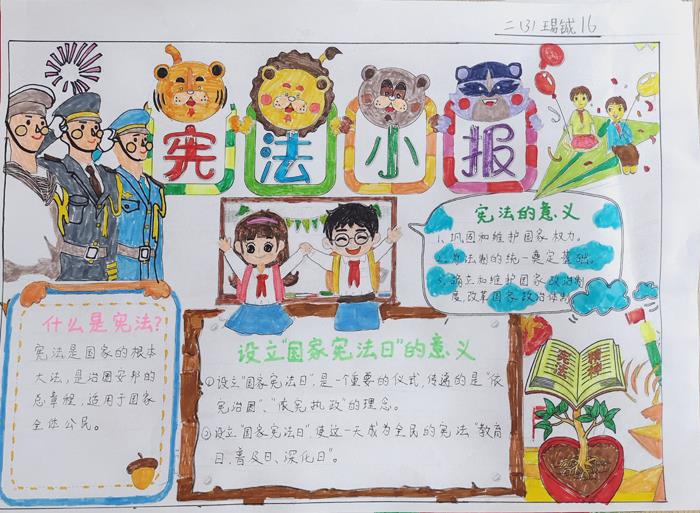 二(3) 王易铖 16
宪法小报
宪法的意义
1、巩固和维护国家权力。
2、为法制的统一奠定基础。
3、确立和维护国家政治制
度,改革国家政治体制
什么是宪法?
宪法是国家的根本
大法,是治国安邦的
总章程,适用于国家
全体公民。
设立"国家宪法日"的意义
①设立"国家宪法日",是一个重要的仪式,传递的是"依
宪治国"、"依宪执政"的理念。
②设立"国家宪法日",使这一天成为全民的宪法"教育
日、普及日、深化日"。
宪法
精神